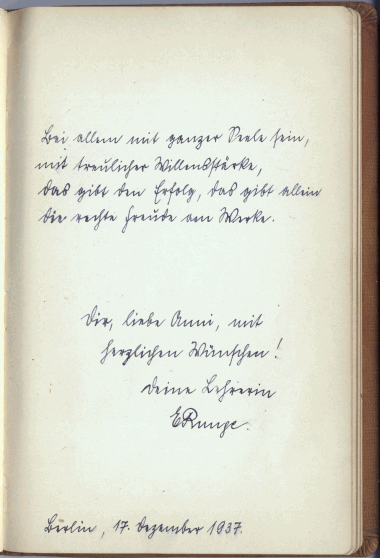 Bei allem mit ganzer Seele sein,
mit treulicher Willensstärke,
das gibt den Erfolg, das gibt allein
die rechte Freude am Werke.
Dir, liebe Anni, mit
herzlichen Wünschen!
Deine Lehrerin
E Runge.
Berlin, 17. Dezember 1937.